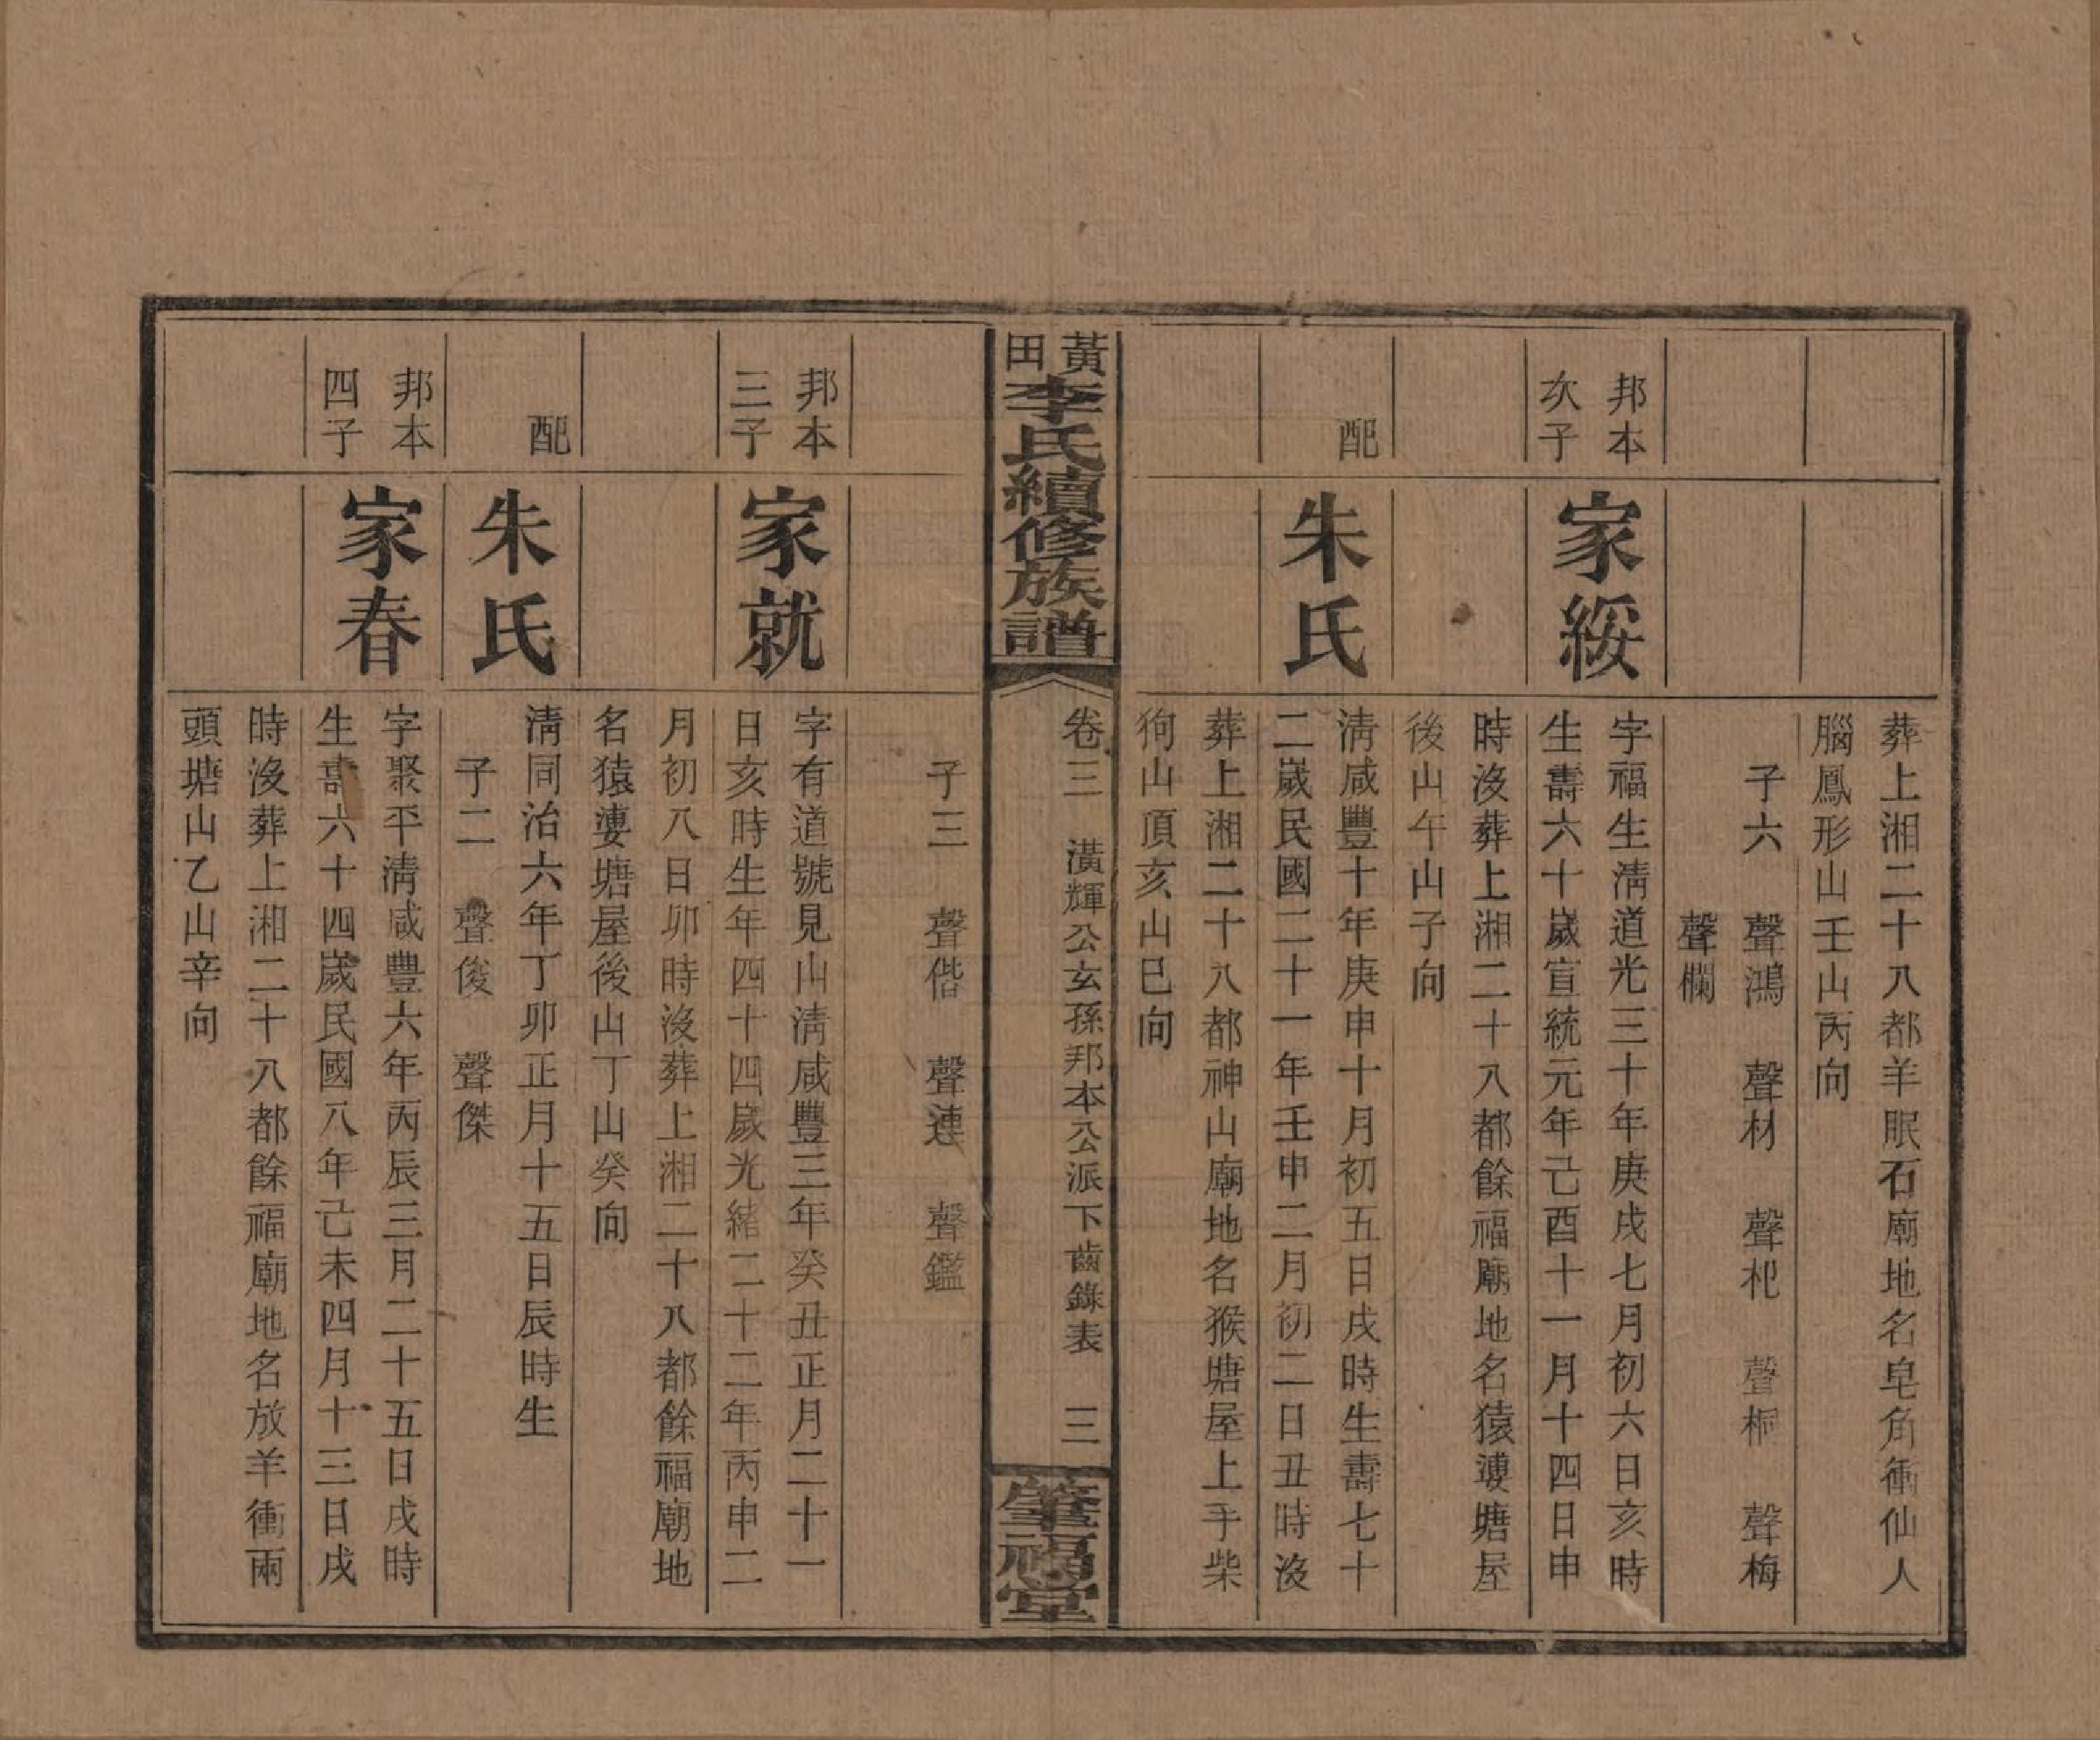 葬上湘二十八都羊眠石廟地名皂角衝仙人
腦鳳形山壬山丙向
子六　聲鴻　聲材　聲杞　聲桐　聲梅
聲欄
邦本
次子
家綏
字福生淸道光三十年庚戌七月初六日亥時
生壽六十歲宣統元年己酉十一月十四日申
時沒葬上湘二十八都餘福廟地名猿塘屋
後山午山子向
配
朱氏
淸咸豐十年庚申十月初五日戌時生壽七十
二歲民國二十一年壬申二月初二日丑時沒
葬上湘二十八都神山廟地名猴塘屋上手柴
狗山頂亥山巳向
黃田李氏續修族譜
卷三　潢輝公玄孫邦本公派下齒錄表　三
肇福堂
子三　聲偕　聲連　聲鑑
邦本
三子
家就
字有道號見山淸咸豐三年癸丑正月二十一
日亥時生年四十四歲光緒二十二年丙申二
月初八日卯時沒葬上湘二十八都餘福廟地
名猿塘屋後山丁山癸向
配
朱氏
淸同治六年丁卯正月十五日辰時生
子二　聲俊　聲傑
邦本
四子
家春
字聚平淸咸豐六年丙辰三月二十五日戌時
生壽六十四歲民國八年己未四月十三日戌
時沒葬上湘二十八都餘福廟地名放羊衝兩
頭塘山乙山辛向